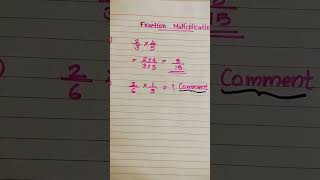 Fraction Multiplication
2/3 × 4/5
= 2×4/3×5 = 8/15
2/6 × 1/3 = ? Comment
2/6
Comment